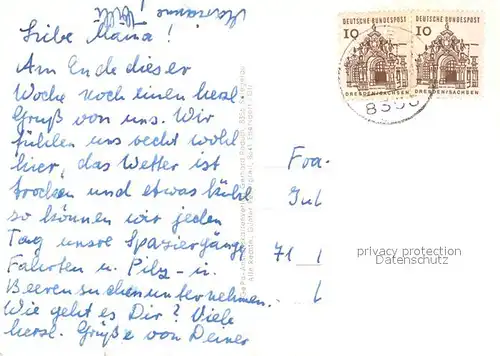 Liebe Mama!
Am Ende dieser
Woche noch einen herzl.
Gruß von uns. Wir
fühlen uns recht wohl
hier, das Wetter ist
trocken und etwas kühl
so können wir jeden
Tag unsre Spaziergänge
Fahrten u. Pilz- u.
Beerensuchen unternehmen.
Wie geht es Dir? Viele
herzl. Grüße von Deiner
DEUTSCHE BUNDESPOST
10
DRESDEN/SACHSEN
DEUTSCHE BUNDESPOST
10
DRESDEN/SACHSEN
Fra
Jul
71
privacy protection
Datenschutz